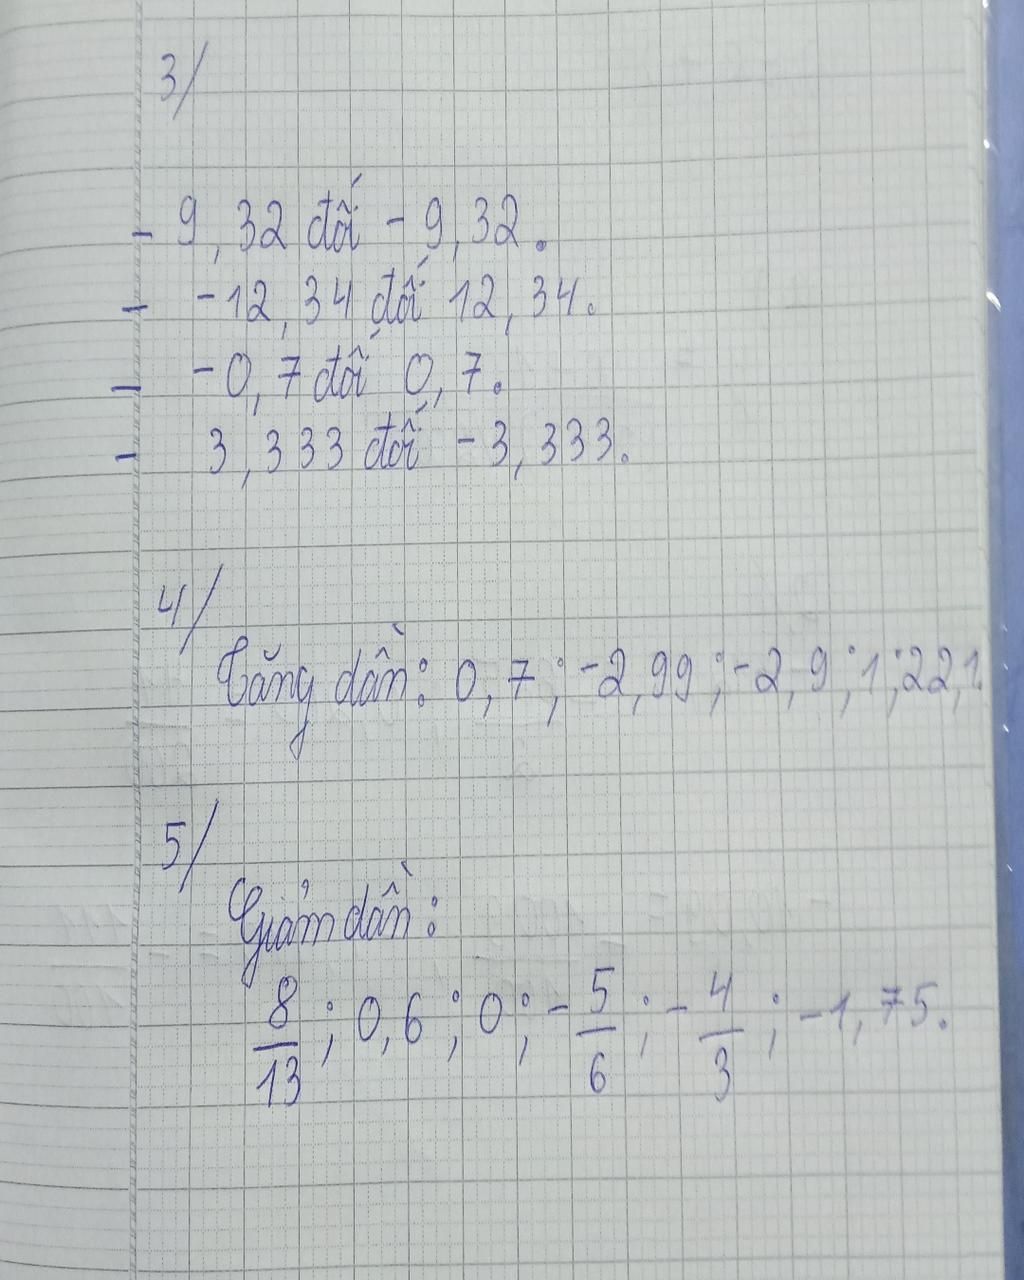 3/
- 9,32 đối - 9,32.
- -12,34 đối 12,34.
- -0,7 đối 0,7.
- 3,333 đối -3,333.
4/
Tăng dần: 0,7; -2,99; -2,9; 1; 22,1.
5/
Giảm dần:
8/13; 0,6; 0; -5/6; -4/3; -1,75.